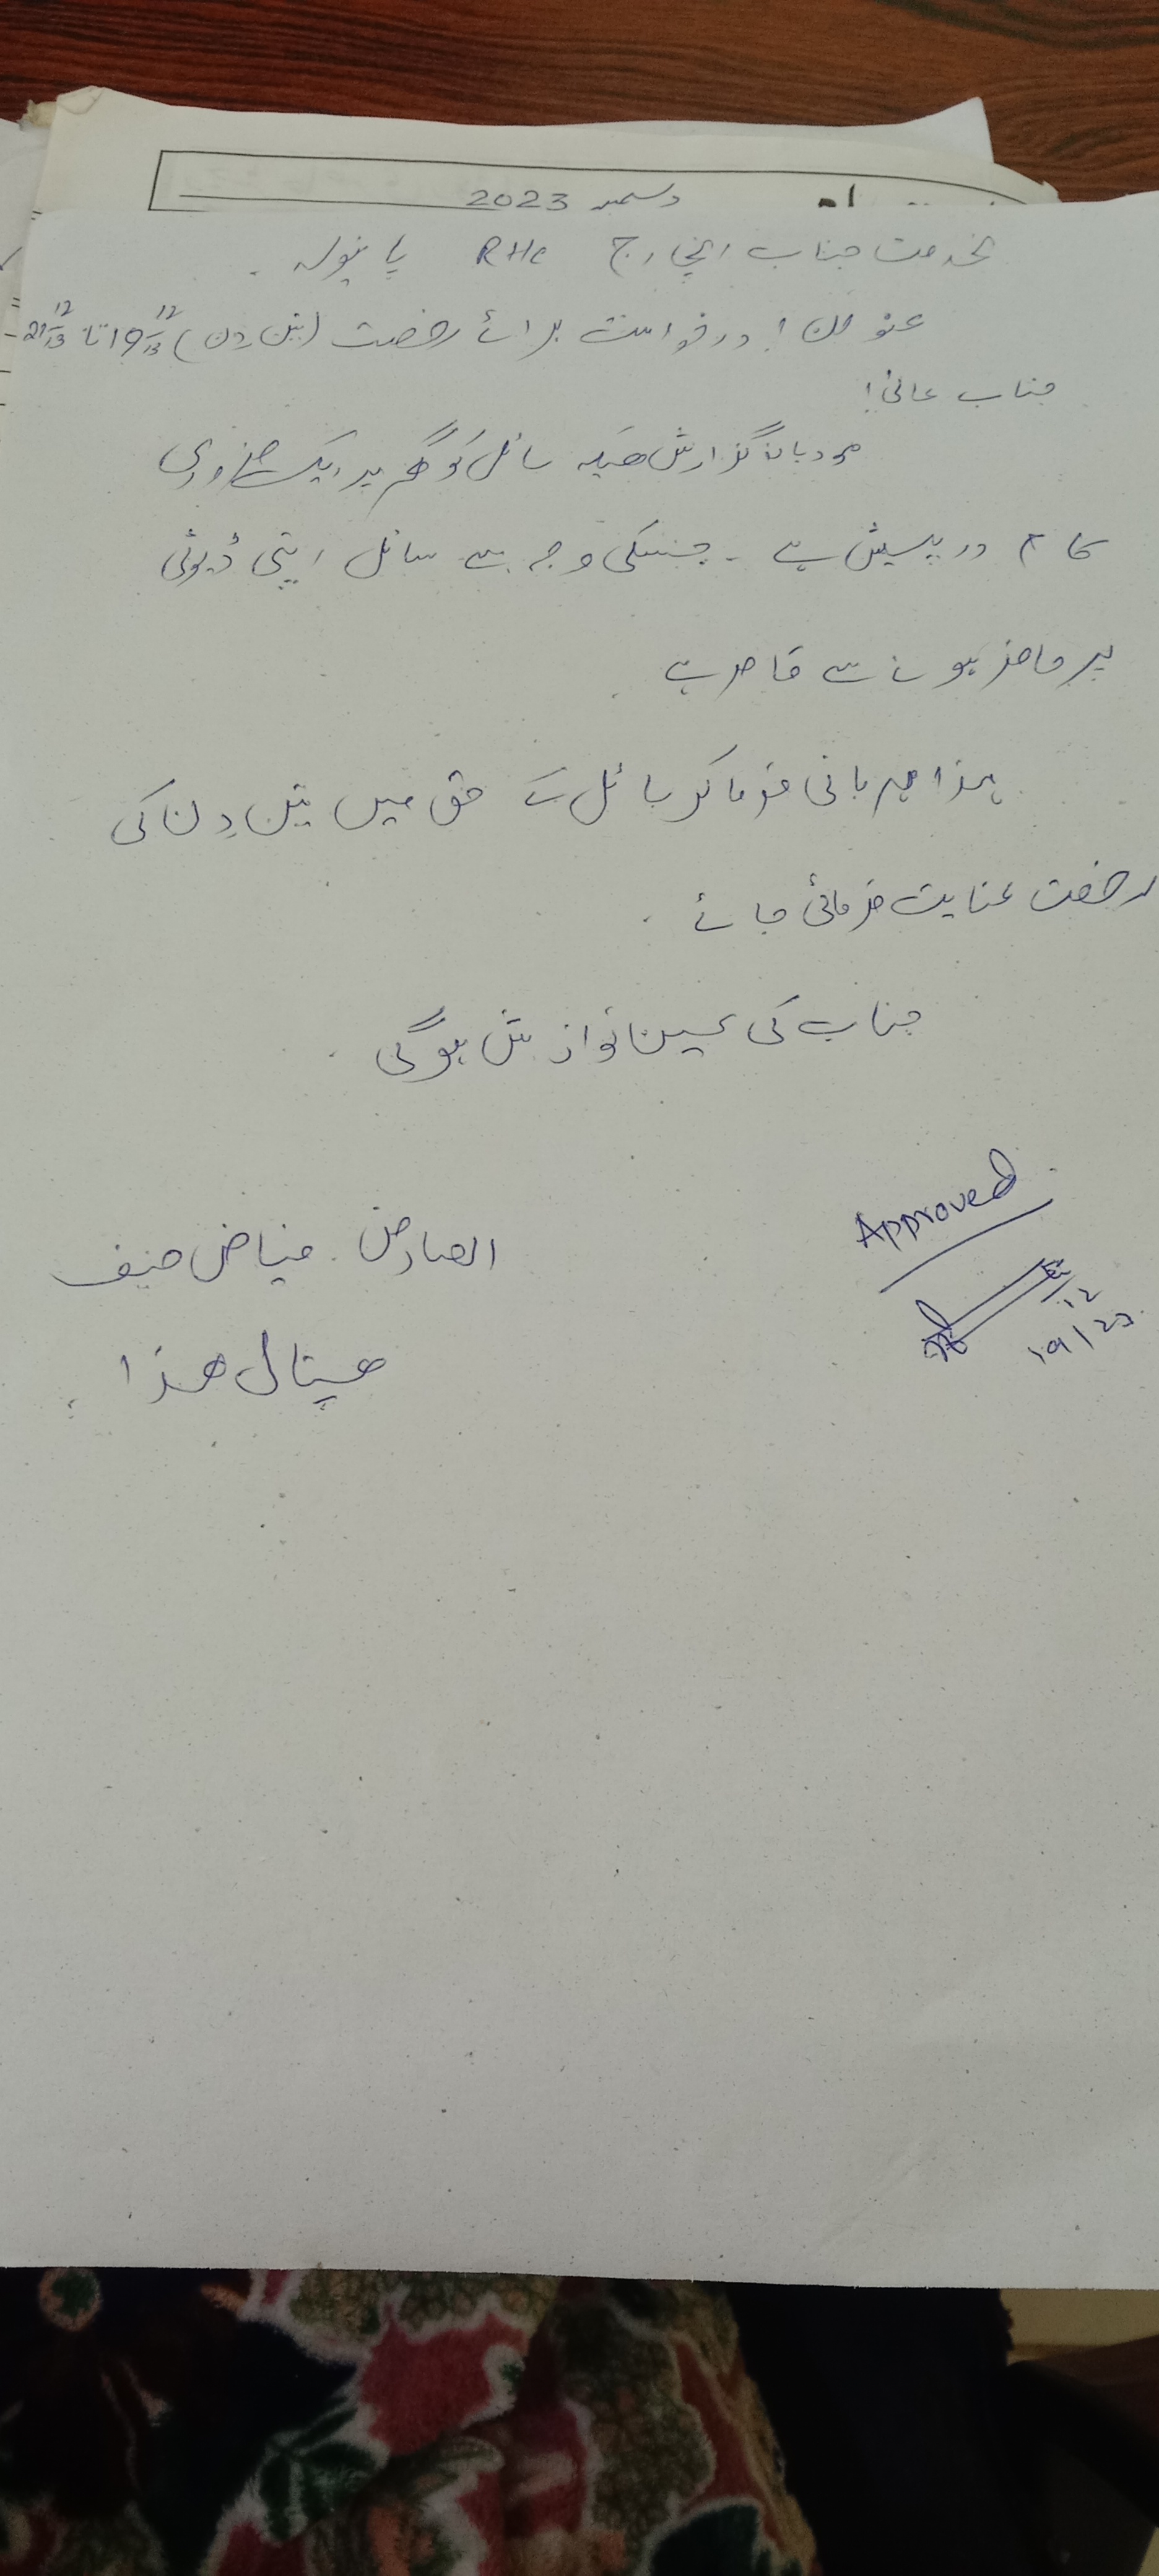 دسمبر 2023
بخدمت جناب انچارج RHC پانپولہ.
عنوان! درخواست برائے رخصت (تین دن) 19 12 تا 21 12
جناب عالی!
مودبانہ گزارش ھیکہ سائل کو گھر پر ایک ضروری
کام درپیش ہے - جسکی وجہ سے سائل اپنی ڈیوٹی
پر حاضر ہونے سے قاصر ہے
لہذا مہربانی فرما کر سائل کے حق میں تین دن کی
رخصت عنایت فرمائی جائے.
جناب کی عین نوازش ہوگی.
Approved
العارض. فیاض حنیف
12
19/23
ھسپتال ھذا.